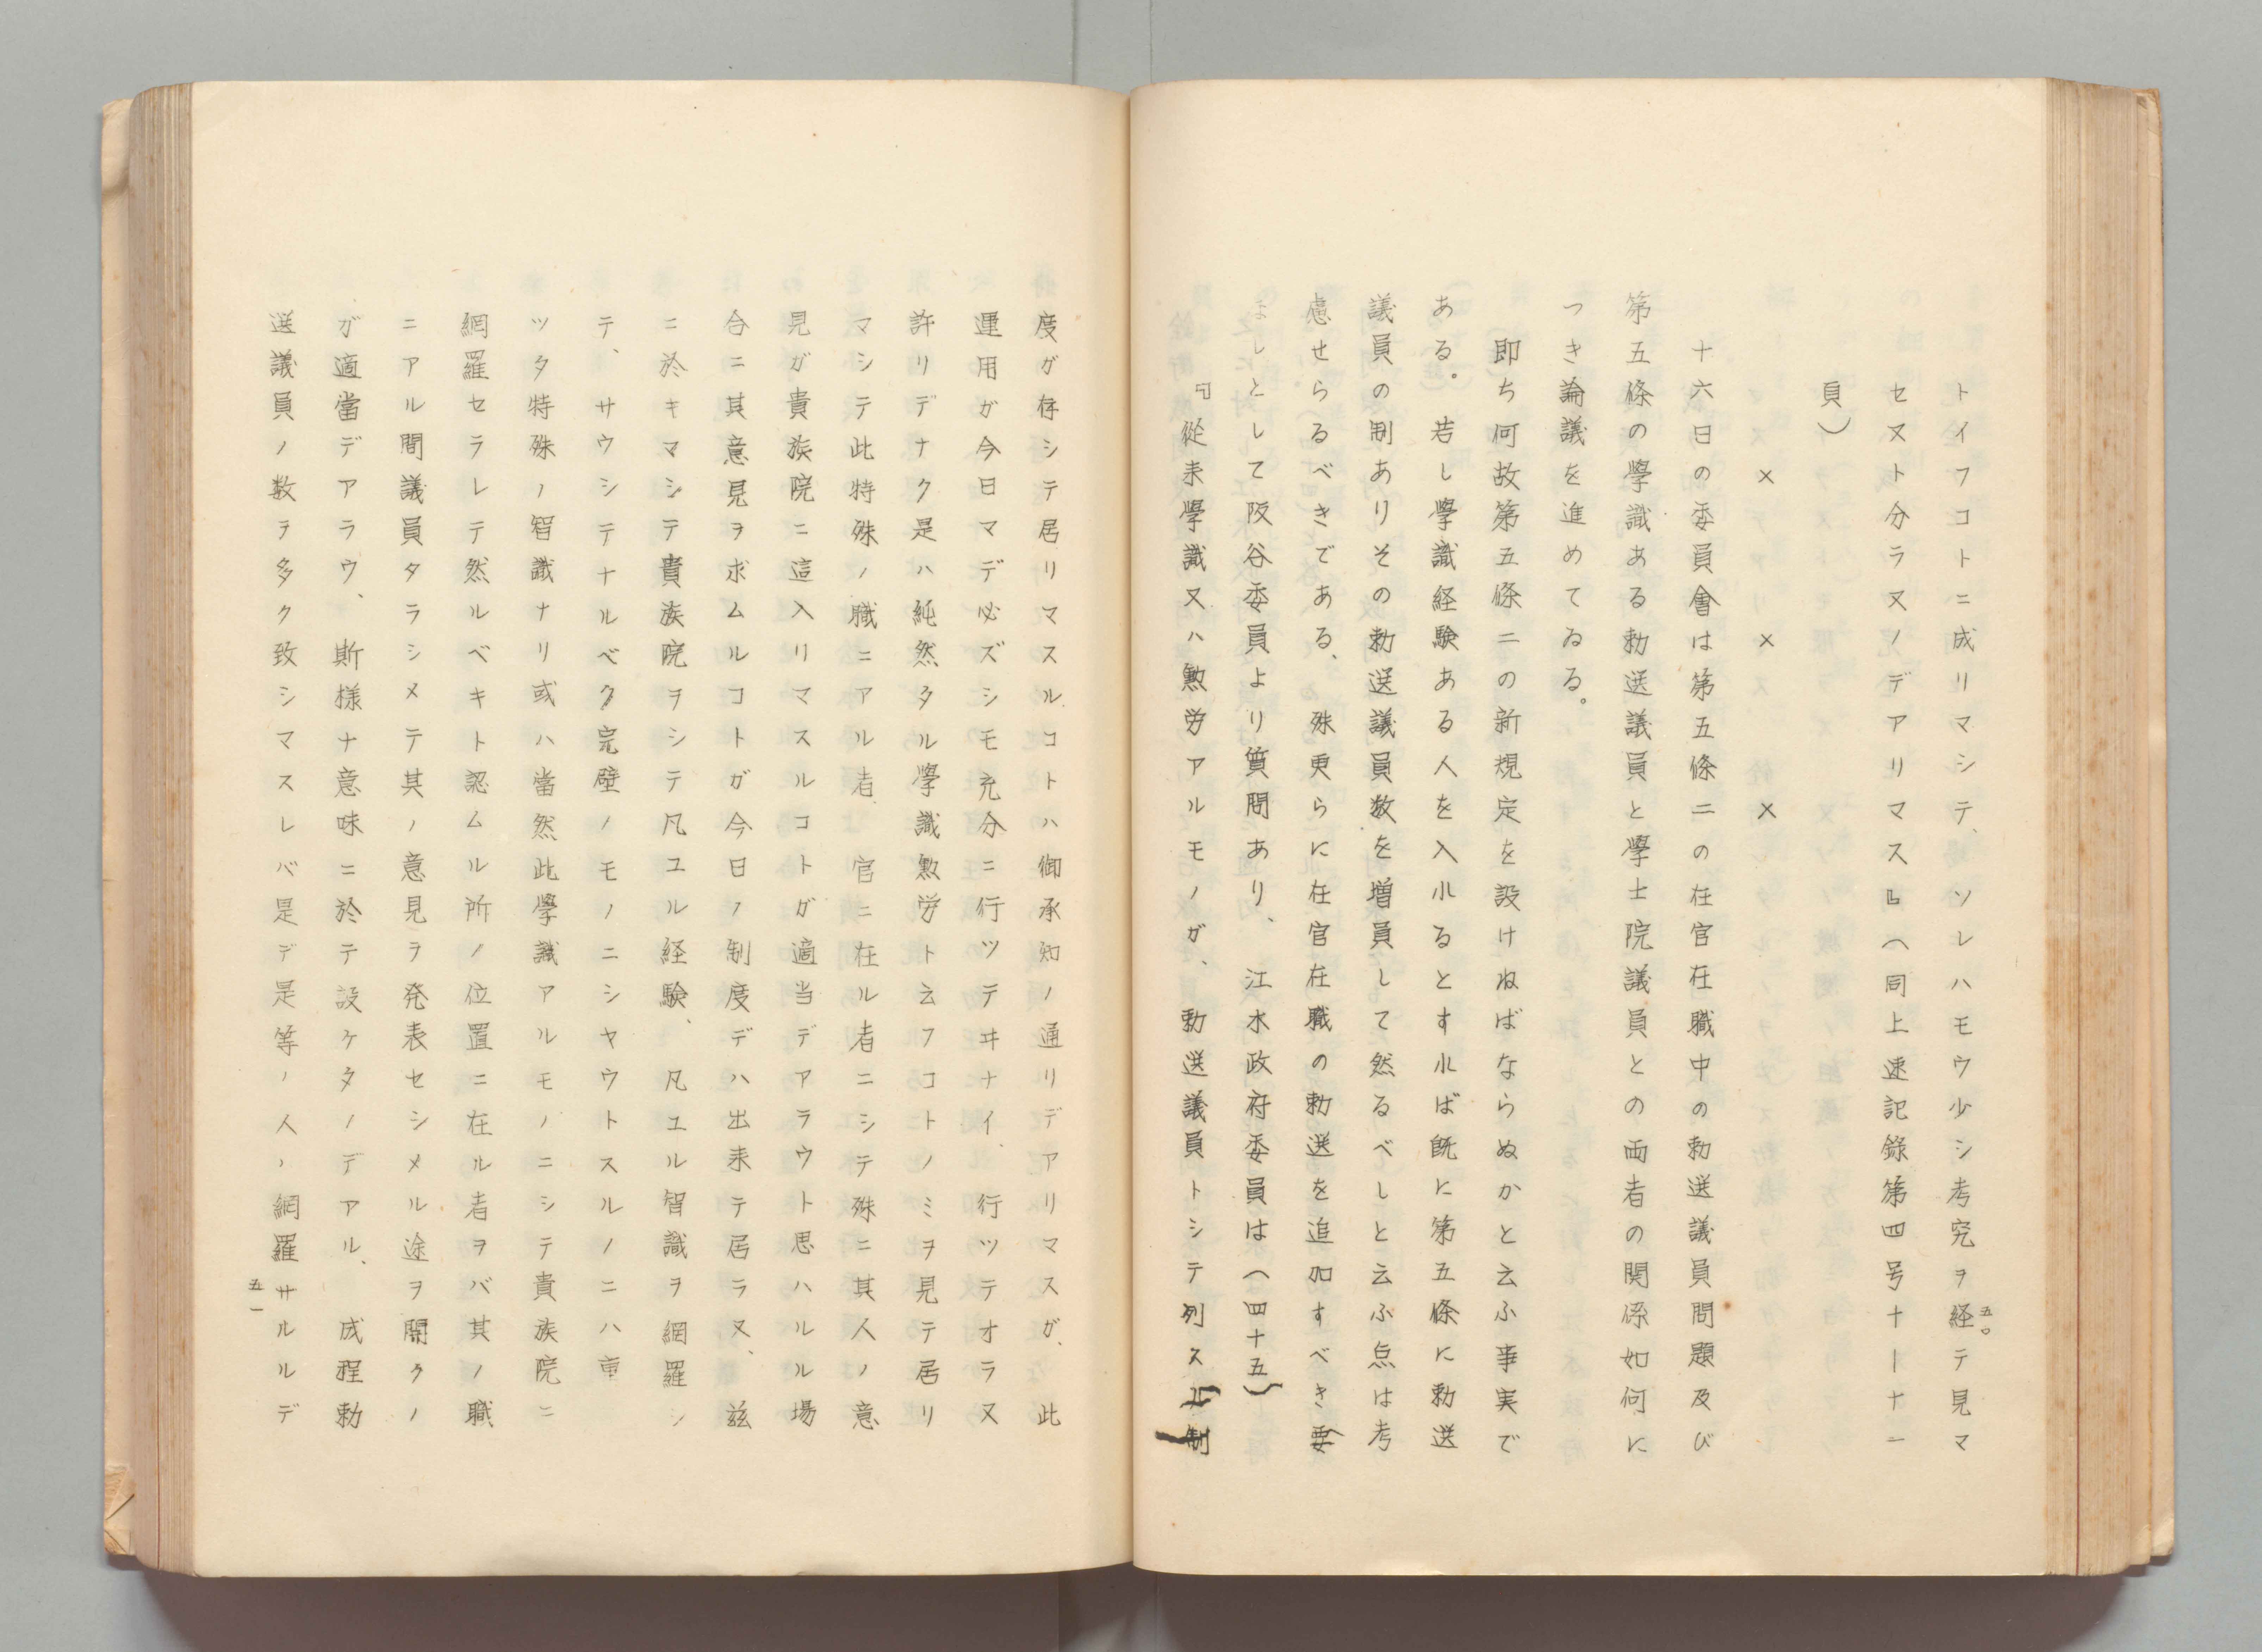 トイフコトニ成リマシテ、ソレハモウ少シ考究ヲ経テ見マ
セヌト分ラヌノデアリマス』(同上速記錄第四号十一十一
頁)
× × ×
十六日の委員會は第五條二の在官在職中の勅選議員問題及び
第五條の學識ある勅選議員と學士院議員との両者の関係如何に
つき論議を進めてゐる。
即ち何故第五條二の新規定を設けねばならぬかと云ふ事実で
ある。若し學識経験ある人を入れるとすれば既に第五條に勅選
議員の制ありその勅選議員数を増員して然るべしと云ふ点は考
慮せらるべきである、殊更らに在官在職の勅選を追加すべき要
ましとして阪谷委員より質問あり、江木政府委員は(四十五)
『從来學識又ハ勲労アルモノガ、勅選議員トシテ列スル制
五〇
度ガ存シテ居リマスルコトハ御承知ノ通リデアリマスガ、此
運用ガ今日マデ必ズシモ充分ニ行ツテヰナイ、行ツテオラヌ
許リデナク是ハ純然タル學識勲労ト云フコトノミヲ見テ居リ
マシテ此特殊ノ職ニアル者、官ニ在ル者ニシテ殊ニ其人ノ意
見ガ貴族院ニ這入リマスルコトガ適当デアラウト思ハルル場
合ニ其意見ヲ求ムルコトガ今日ノ制度デハ出来テ居ラヌ、茲
ニ於キマシテ貴族院ヲシテ凡ユル経験、凡ユル智識ヲ網羅シ
テ、サウシテナルベク完璧ノモノニシヤウトスルノニハ重
ツタ特殊ノ智識ナリ或ハ當然此學識アルモノニシテ貴族院ニ
網羅セラレテ然ルベキト認ムル所ノ位置ニ在ル者ヲバ其ノ職
ニアル間議員タラシメテ其ノ意見ヲ発表セシメル途ヲ開クノ
ガ適當デアラウ、斯様ナ意味ニ於テ設ケタノデアル、成程勅
選議員ノ数ヲ多ク致シマスレバ是デ是等ノ人ハ網羅サルルデ
五一